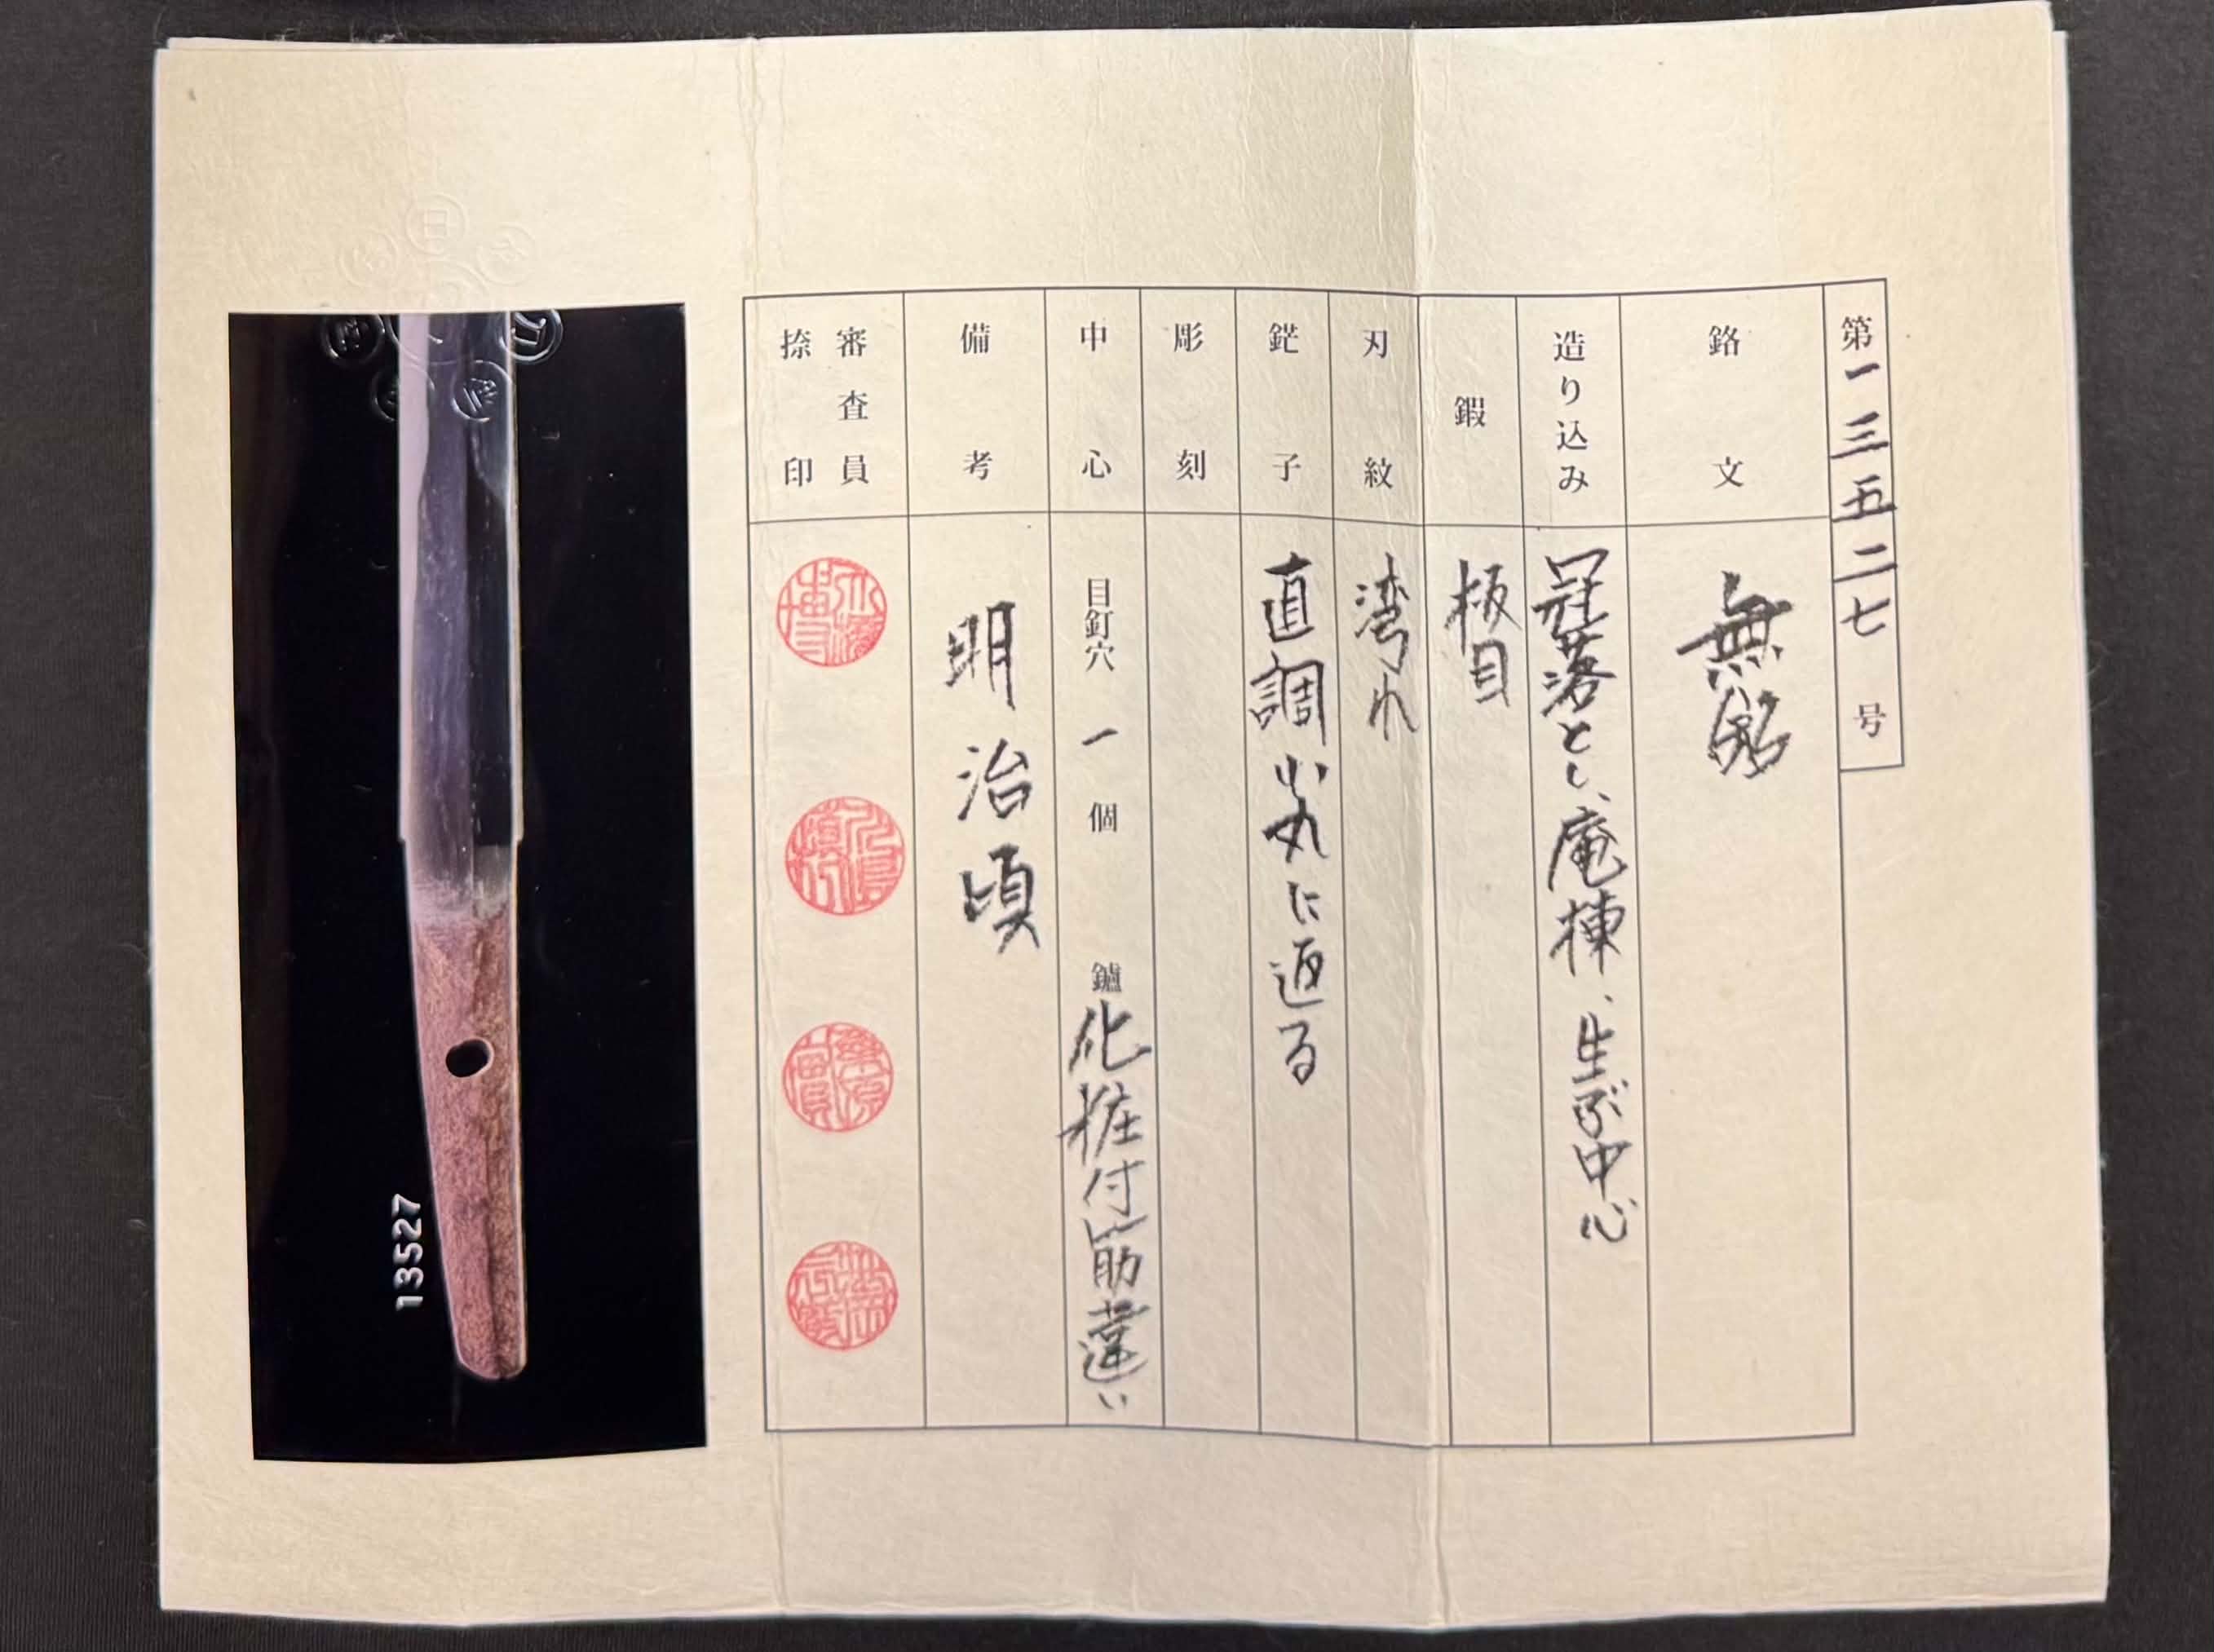 第一三五二七号
銘文
無銘
造り込み
冠落とし、庵棟、生ぶ中心
鍜
板目
刃紋
湾れ
鋩子
直調小丸に返る
彫刻
中心
目釘穴 一 個 鑢 化粧付筋違い
備考
明治頃
審査員
捺印
13527